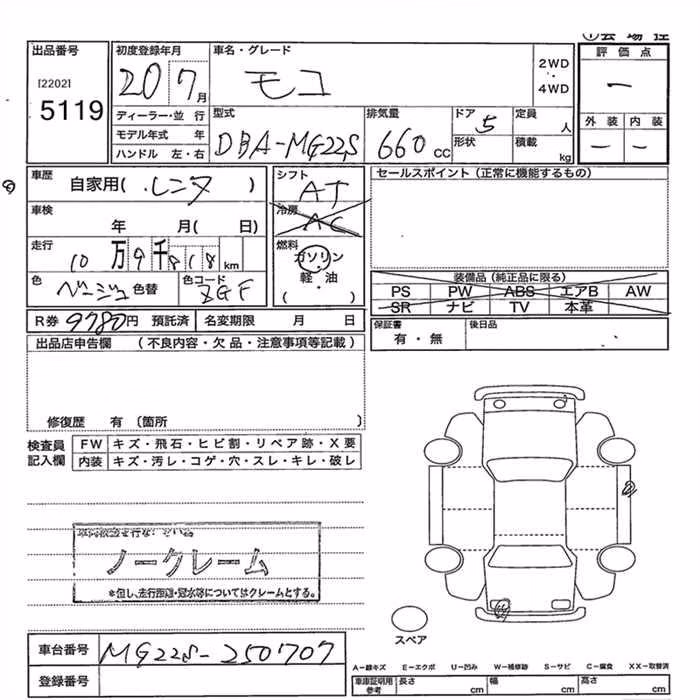 出品番号
[2202]
5119
初度登録年月
20 7月
ディーラー・並行
モデル年式 年
ハンドル 左・右
車名・グレード
モコ
2WD
・
4WD
型式
DBA-MG22S
排気量
660 cc
ドア 5
形状
定員 人
積載 kg
評価点
—
外装 内装
— —
車歴
自家用(レンタ)
車検
年 月(日)
走行
10万9千 km
色
ベージュ 色替
色コード
ZGF
シフト
AT
冷房
AC
燃料
ガソリン
・
軽・油
( )
セールスポイント(正常に機能するもの)
装備品(純正品に限る)
PS PW ABS エアB AW
SR ナビ TV 本革
保証書
有・無
後日品
R券 9780円 預託済 名変期限 月 日
出品店申告欄 (不良内容・欠品・注意事項等記載)
修復歴 有 〔箇所 〕
検査員
記入欄
FW キズ・飛石・ヒビ割・リペア跡・X要
内装 キズ・汚レ・コゲ・穴・スレ・キレ・破レ
ノークレーム
*但し、走行距離・冠水等についてはクレームとする。
スペア
車台番号 MG22S-250707
登録番号
A−線キズ E−エクボ U−凹み W−補修跡 S−サビ C−腐食 XX−取替済
車庫証明用
参考
長さ cm
幅 cm
高さ cm